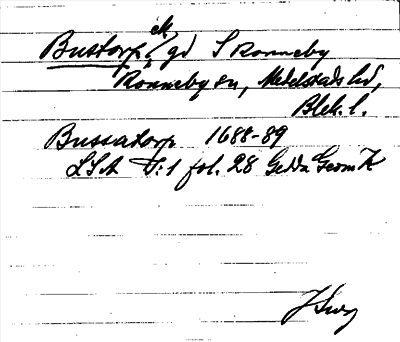 ek
Bustorp, gd S Ronneby
Ronneby sn, Medelstads hd,
Blek. l.
Bussatorp 1688-89
LSA S:1 fol. 28 Gedda Geom K